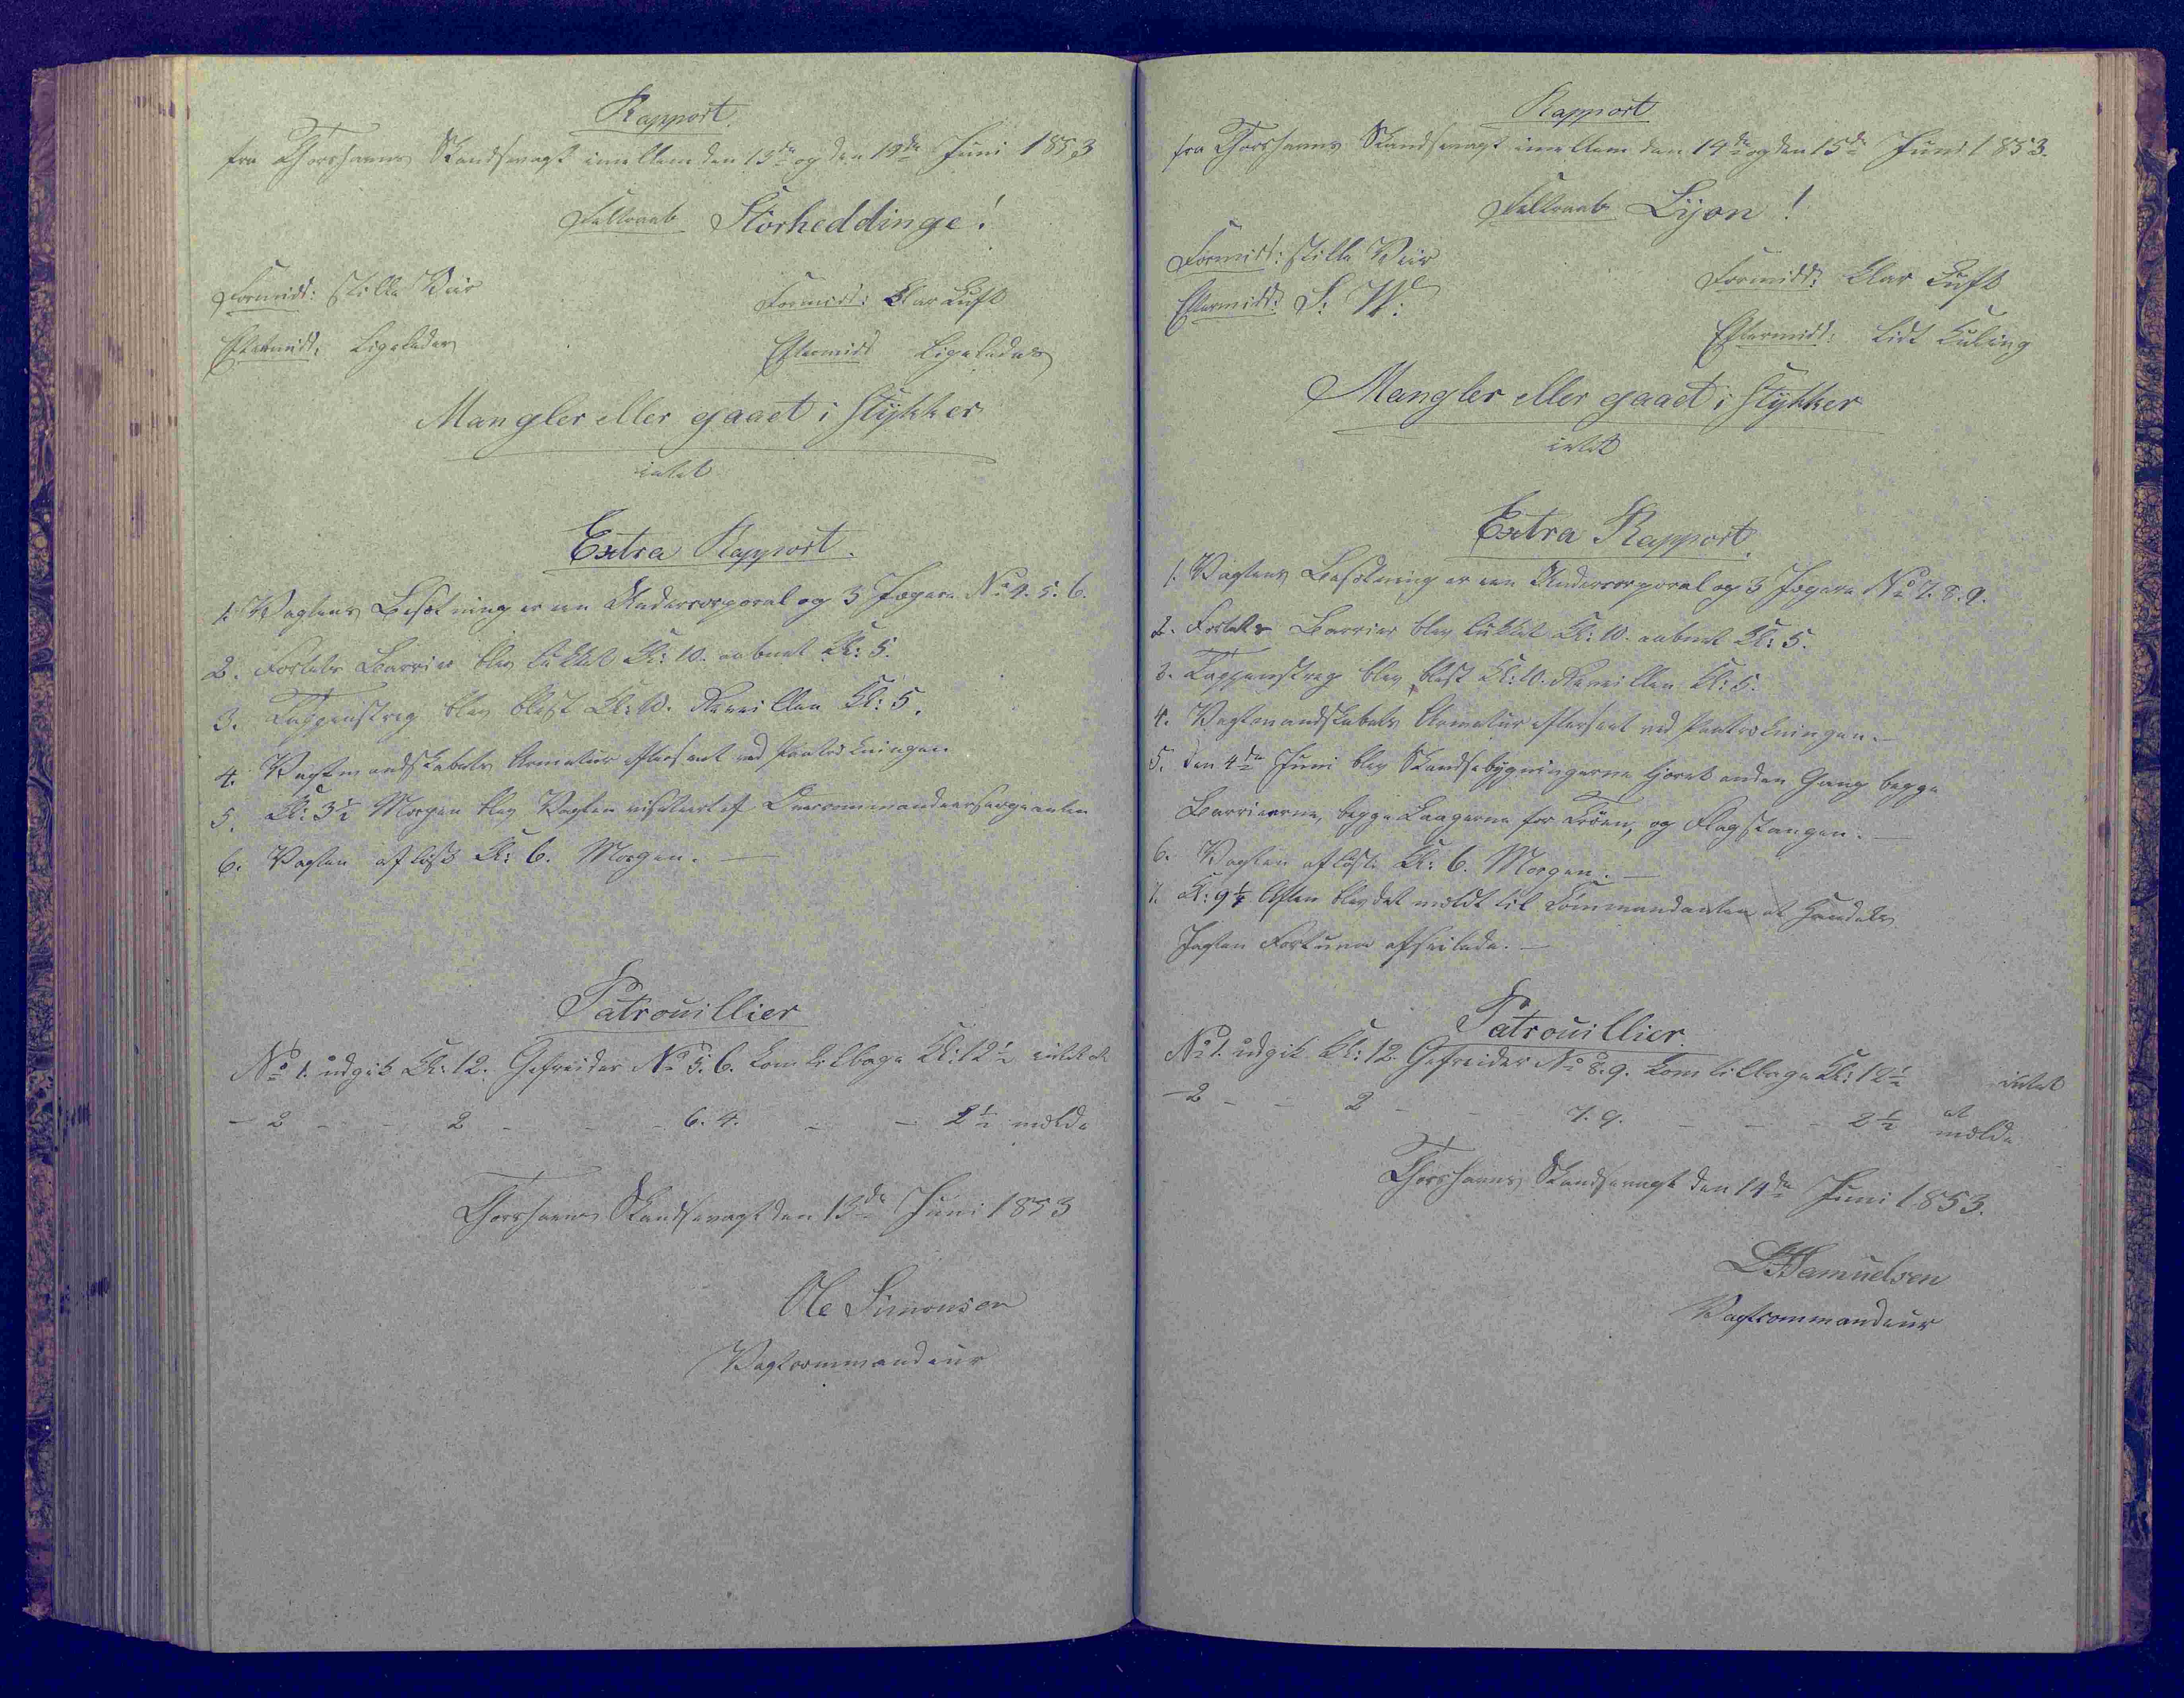 Rapport
fra Thorshavns Skandsevagt imellem den 13de og den 14de Juni 1853
Feltraab Storheddinge!
Formidt: stille Veir
Formidt: Klar Luft
Eftermidt: Ligeledes
Eftermidt Ligeledes
Mangler eller gaaet i Stykker
intet
Extra Rapport.
1. Vagtens Besætning er een Undercorporal og 3 Jægere No 4. 5. 6.
2. Fortets Barrier blev lukket Kl: 10. aabnet Kl: 5.
3. Tappenstreg blev blæst Kl: 10. Reveillen Kl: 5.
4. Vagtmandskabets Armatur efterseet ved Paatrækningen.
5. Kl: 3½ Morgen blev Vagten visiteret af Overcommandeersergeanten
6. Vagten afløst Kl: 6. Morgen. —
Patrouillier
No 1. udgik Kl: 12. Gefreider No 5. 6. kom tilbage Kl: 12½ intet at
— 2 — — 2 — — — 6. 4. — — 2½ melde
Thorshavns Skandsevagt den 13de Juni 1853
Ole Simonsen
Vagtcommandeur
Rapport
fra Thorshavns Skandsevagt imellem den 14de og den 15de Juni 1853.
Feltraab Lyon!
Formidt: stille Veir
Formidt: Klar Luft
Eftermidt: S: W:
Eftermidt: Lidt Kuling
Mangler eller gaaet i Stykker
intet
Extra Rapport.
1. Vagtens Besætning er een Undercorporal og 3 Jægere No 7. 8. 9.
2. Fortets Barrier blev lukket Kl: 10. aabnet Kl: 5.
3. Tappenstreg blev blæst Kl: 10. Reveillen Kl: 5.
4. Vagtmandskabets Armatur efterseet ved Paatrækningen. —
5. Den 4de Juni blev Skandsebygningerne tjæret anden Gang begge
Barriererne, begge Laagerne for Trøen, og Flagstangen. —
6. Vagten afløst Kl: 6. Morgen. —
7. Kl: 9¼ Aften blev det meldt til Commandanten at Handels
Jagten Fortuna afseilede. —
Patrouillier.
No 1. udgik Kl: 12. Gefreider No 8. 9. kom tilbage Kl: 12½ intet
— 2 — — 2 — — 7. 9. — — — 2½ at melde
Thorshavns Skandsevagt den 14de Juni 1853.
Samuelsen
Vagtcommandeur